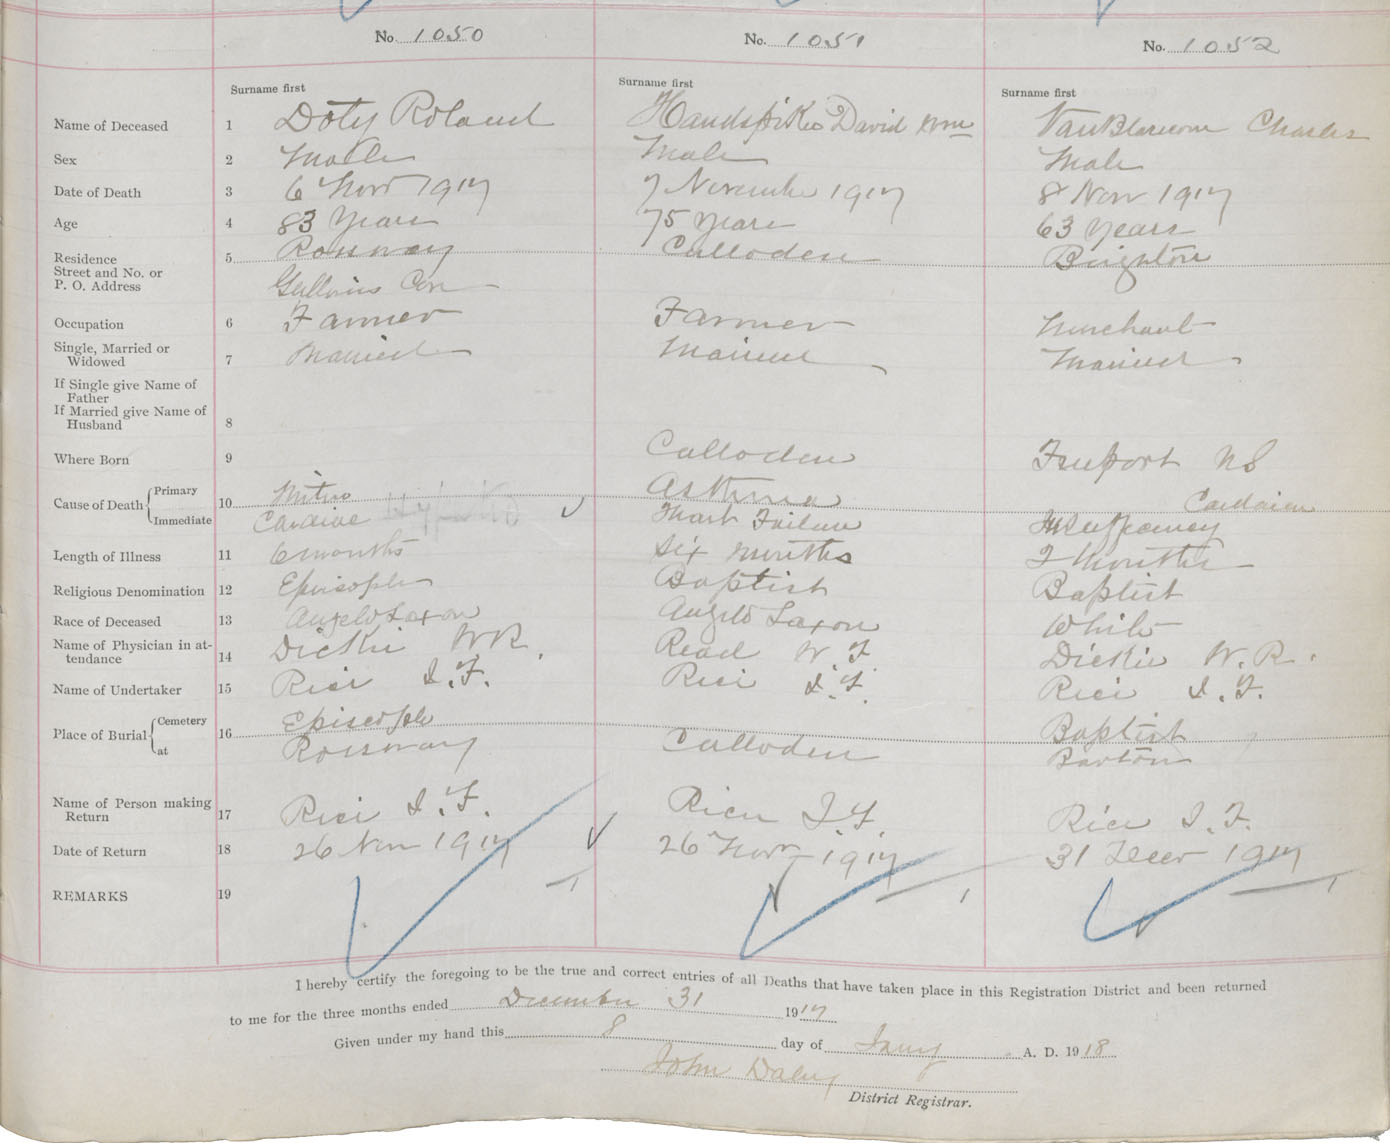 No. 1050 No. 1051 No. 1052
Surname first Surname first Surname first
Name of Deceased 1 Doty Roland Handspiker David Wm VanBlarcom Charles
Sex 2 Male Male Male
Date of Death 3 6 Nov 1917 7 November 1917 8 Nov 1917
Age 4 83 Years 75 Years 63 Years
Residence 5 Rossway Culloden Brighton
Street and No. or
P. O. Address Gullivers Cove
Occupation 6 Farmer Farmer Merchant
Single, Married or
Widowed 7 Married Married Married
If Single give Name of
Father
If Married give Name of
Husband 8
Where Born 9 Culloden Freeport NS
Cause of Death Primary 10 Mitro Asthma Cardaice
Immediate Cardiac Heart Failure Insuffciency
Length of Illness 11 6 months Six months 2 Months
Religious Denomination 12 Episcople Baptist Baptist
Race of Deceased 13 Anglo Saxon Anglo Saxon White
Name of Physician in at-
tendance 14 Dickie W R. Read W. F. Dickie W. R.
Name of Undertaker 15 Rice I. F. Rice I. F. Rice I. F.
Place of Burial Cemetery 16 Episcople Baptist
at Rossway Culloden Barton
Name of Person making
Return 17 Rice I. F. Rice I. F. Rice I. F.
Date of Return 18 26 Nov 1917 26 Nov 1917 31 Decr 1917
REMARKS 19
I hereby certify the foregoing to be the true and correct entries of all Deaths that have taken place in this Registration District and been returned
to me for the three months ended December 31 1917
Given under my hand this 8 day of Jany A. D. 1918
John Daley
District Registrar.